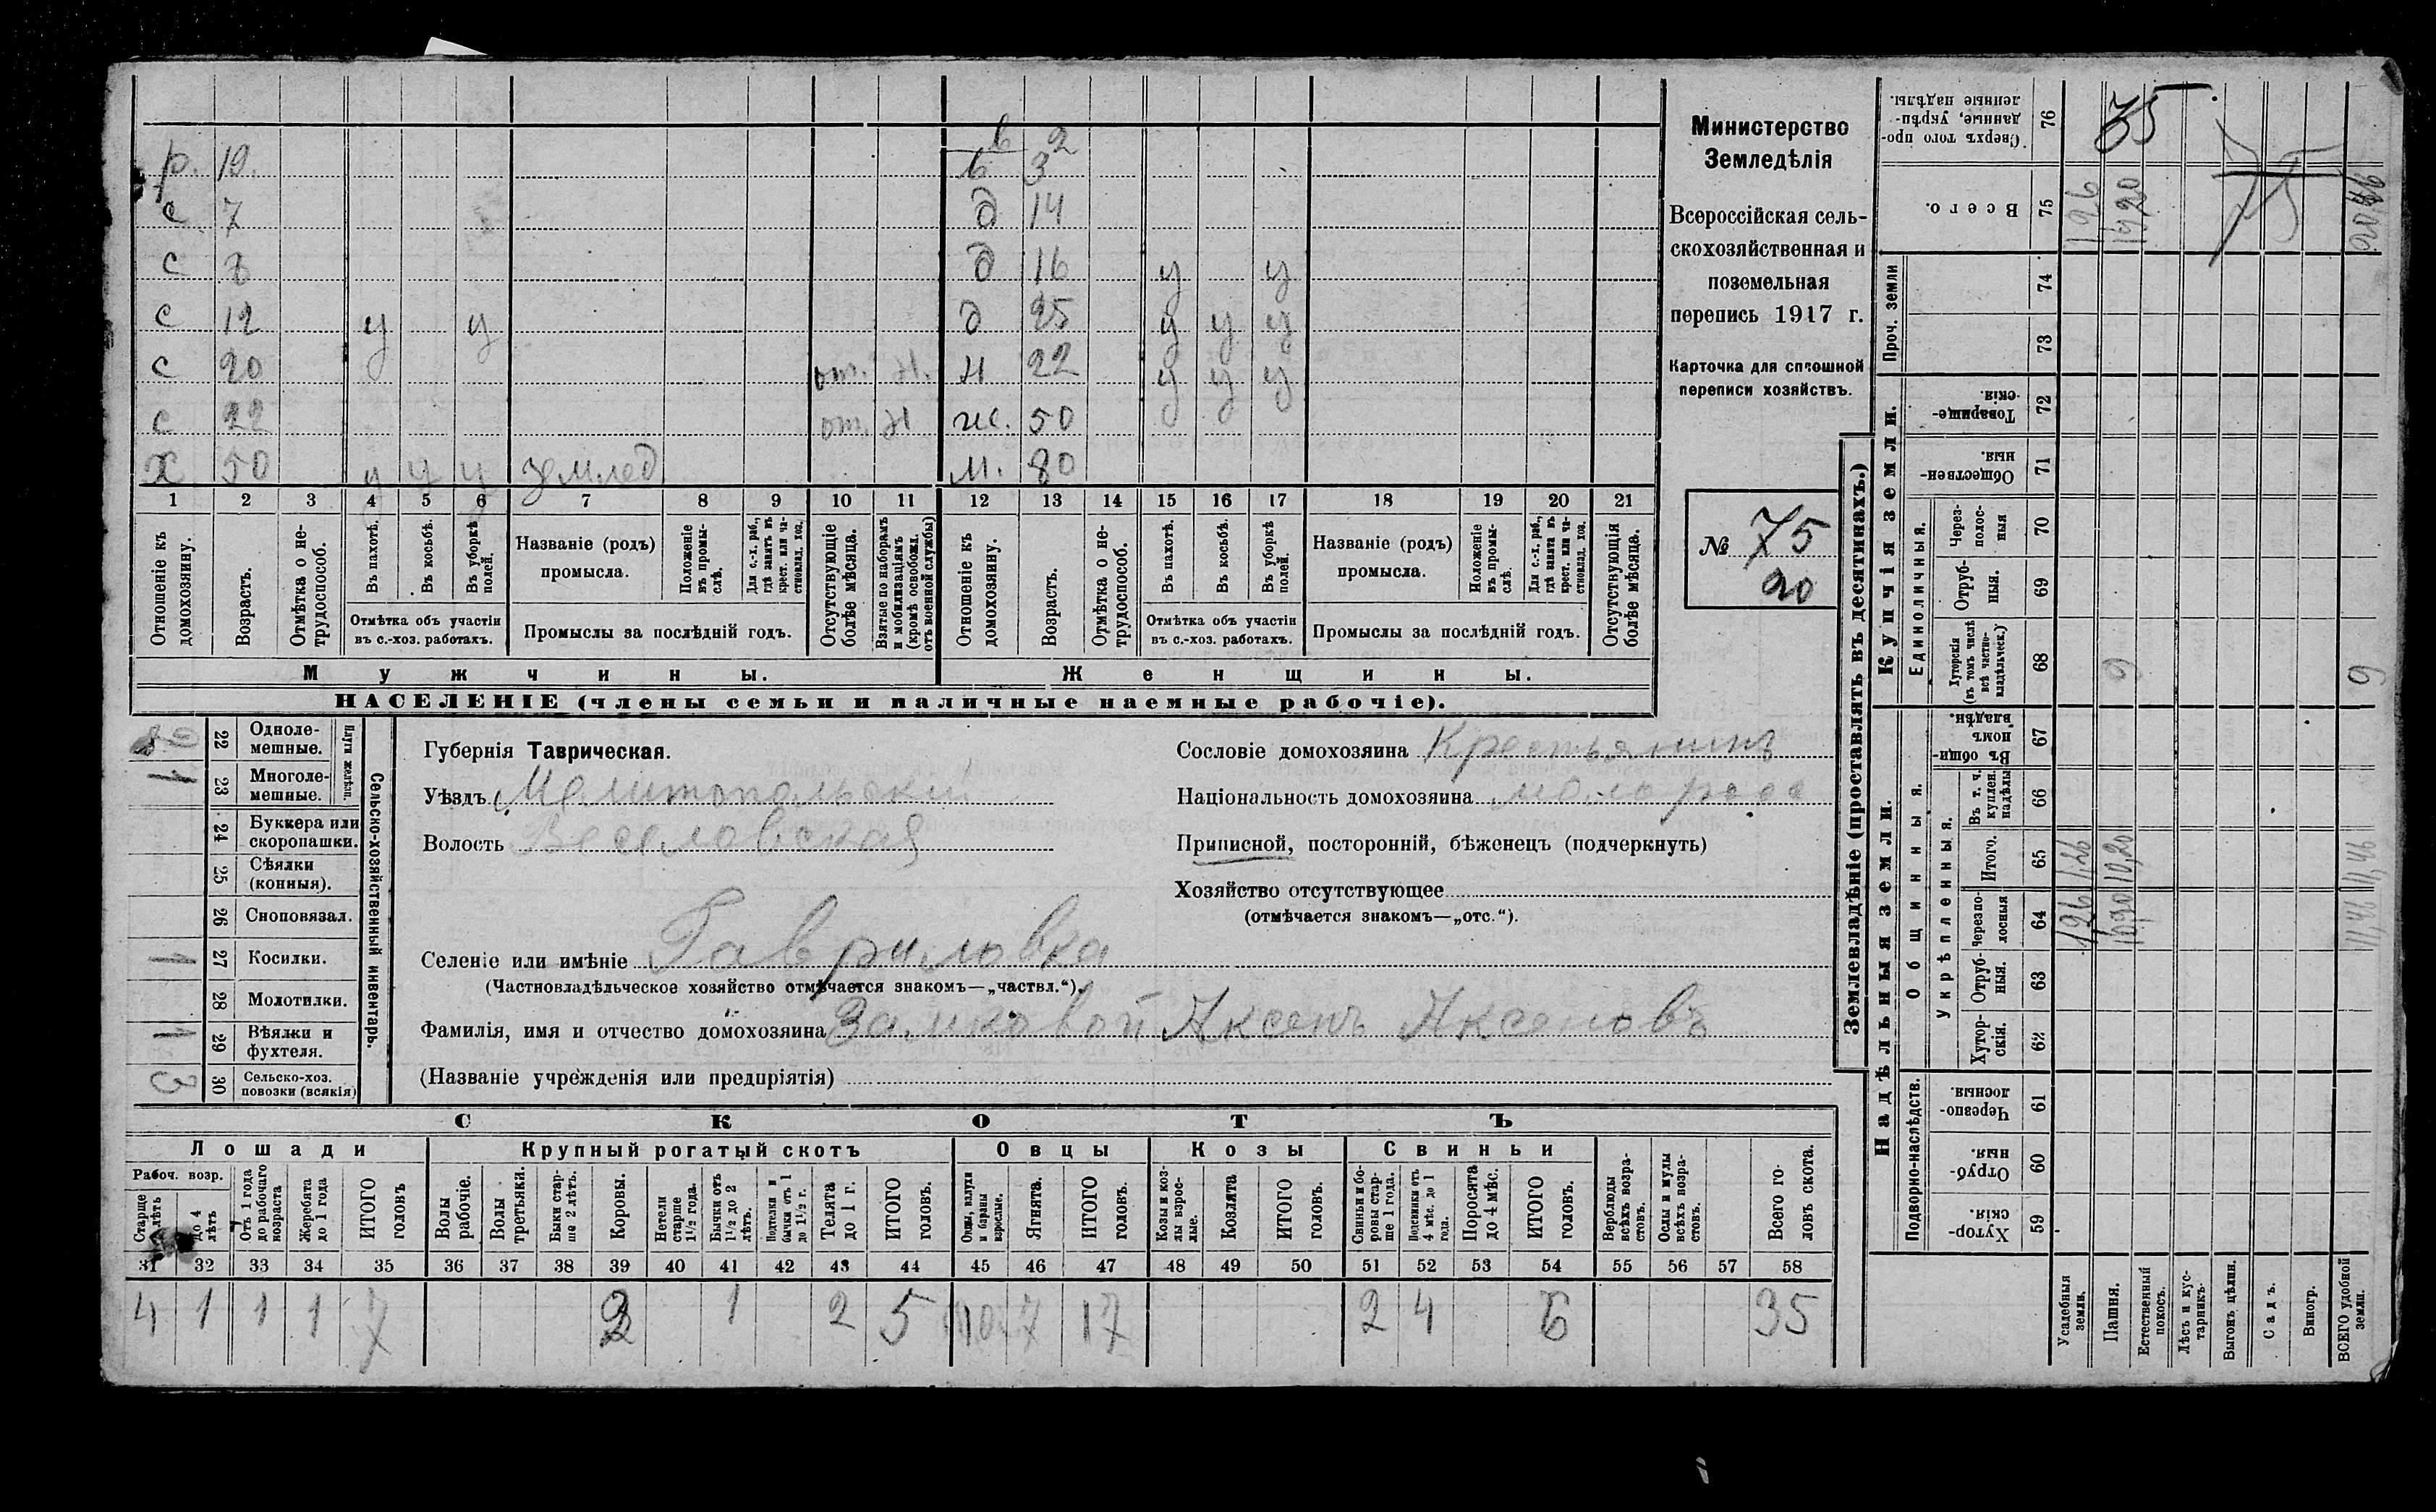 р. 19. в 2
в 3
с 7 д 14
с 8 д 16 у у
с 12 у у д 25 у у у
с 20 от. н. н 22 у у у
с 22 от. н ж. 50
х 50 у у у землед м. 80
1 2 3 4 5 6 7 8 9 10 11 12 13 14 15 16 17 18 19 20 21
Отношеніе къ домохозяину.
Возрастъ.
Отмѣтка о не-трудоспособ.
Въ пахотѣ.
Въ косьбѣ.
Въ уборкѣ полей.
Отмѣтка объ участіи въ с.-хоз. работахъ.
Названіе (родъ) промысла.
Положеніе въ промы-слѣ.
Для с.-х. раб., гдѣ занятъ въ крест. или ча-стновлад. хоз.
Промыслы за послѣдній годъ.
Отсутствующіе болѣе мѣсяца.
Взятые по наборамъ и мобилизаціямъ (кромѣ освобожд. отъ военной службы)
Отношеніе къ домохозяину.
Возрастъ.
Отмѣтка о не-трудоспособ.
Въ пахотѣ.
Въ косьбѣ.
Въ уборкѣ полей.
Отмѣтка объ участіи въ с.-хоз. работахъ.
Названіе (родъ) промысла.
Положеніе въ промы-слѣ.
Для с.-х. раб., гдѣ занята въ крест. или ча-стновлад. хоз.
Промыслы за послѣдній годъ.
Отсутствующія болѣе мѣсяца.
Мужчины. Женщины.
НАСЕЛЕНІЕ (члены семьи и наличные наемные рабочіе).
Министерство
Земледѣлія
Всероссійская сель-
скохозяйственная и
поземельная
перепись 1917 г.
Карточка для сплошной
переписи хозяйствъ.
№ 75
20
22 Одноле-мешные.
1 23 Многоле-мешные.
Плуги желѣзн.
24 Буккера или скоропашки.
25 Сѣялки (конныя).
26 Сноповязал.
1 27 Косилки.
28 Молотилки.
1 29 Вѣялки и фухтеля.
3 30 Сельско-хоз. повозки (всякія)
Сельско-хозяйственный инвентарь.
Губернія Таврическая.
Уѣздъ Мелитопольскій
Волость Веселовская
Сословіе домохозяина Крестьянинъ
Національность домохозяина малоросс
Приписной, посторонній, бѣженецъ (подчеркнуть)
Хозяйство отсутствующее
(отмѣчается знакомъ—„отс.“).
Селеніе или имѣніе Гавриловка
(Частновладѣльческое хозяйство отмѣчается знакомъ—„частвл.“).
Фамилія, имя и отчество домохозяина Замковой Аксенъ Аксеновъ
(Названіе учрежденія или предпріятія)
СКОТЪ
Лошади Крупный рогатый скотъ Овцы Козы Свиньи
Рабоч. возр.
Старше 4 лѣтъ
до 4 лѣтъ
Отъ 1 года до рабочаго возраста
Жеребята до 1 года
ИТОГО головъ
Волы рабочіе.
Волы третьяки.
Быки стар-ше 2 лѣтъ.
Коровы.
Нетели старше 1½ года.
Бычки отъ 1½ до 2 лѣтъ.
Подтелки и бычки отъ 1 до 1½ г.
Телята до 1 г.
ИТОГО головъ.
Овцы, валухи и бараны взрослые.
Ягнята.
ИТОГО головъ.
Козы и коз-лы взрос-лые.
Козлята
ИТОГО головъ.
Свиньи и бо-ровы стар-ше 1 года.
Подсвинки отъ 4 мѣс. до 1 года.
Поросята до 4 мѣс.
ИТОГО головъ.
Верблюды всѣхъ возра-стовъ.
Ослы и мулы всѣхъ возра-стовъ.
Всего го-ловъ скота.
31 32 33 34 35 36 37 38 39 40 41 42 43 44 45 46 47 48 49 50 51 52 53 54 55 56 57 58
4 1 1 1 7 2 1 2 5 10 7 17 2 4 6 35
Землевладѣніе (проставлять въ десятинахъ.)
Надѣльныя земли. Купчія земли.
Подворно-наслѣдств.
Общинныя.
Укрѣпленныя.
Единоличныя.
Проч. земли
59 Хутор-скія.
60 Отруб-ныя.
61 Черезпо-лосныя.
62 Хутор-скія.
63 Отруб-ныя.
64 Черезпо-лосныя
65 Итого.
66 Въ т. ч. куплен. надѣлы
67 Въ общин-номъ владѣн.
68 Хуторскія (въ томъ числѣ всѣ частно-владѣльческ.)
69 Отруб-ныя.
70 Через-полос-ныя
71 Обществен-ныя.
72 Товарище-скія.
73
74
75 Всего.
76 Сверхъ того про-данные, укрѣп-ленные надѣлы.
Усадебныя земли. 1,26 1,26 1,26
Пашня. 10,20 10,20 9 19,20 35
Естественный покосъ.
Лѣсъ и кус-тарникъ.
Выгонъ цѣлин.
Садъ.
Виногр.
ВСЕГО удобной земли. 11,46 11,46 9 20,46
75